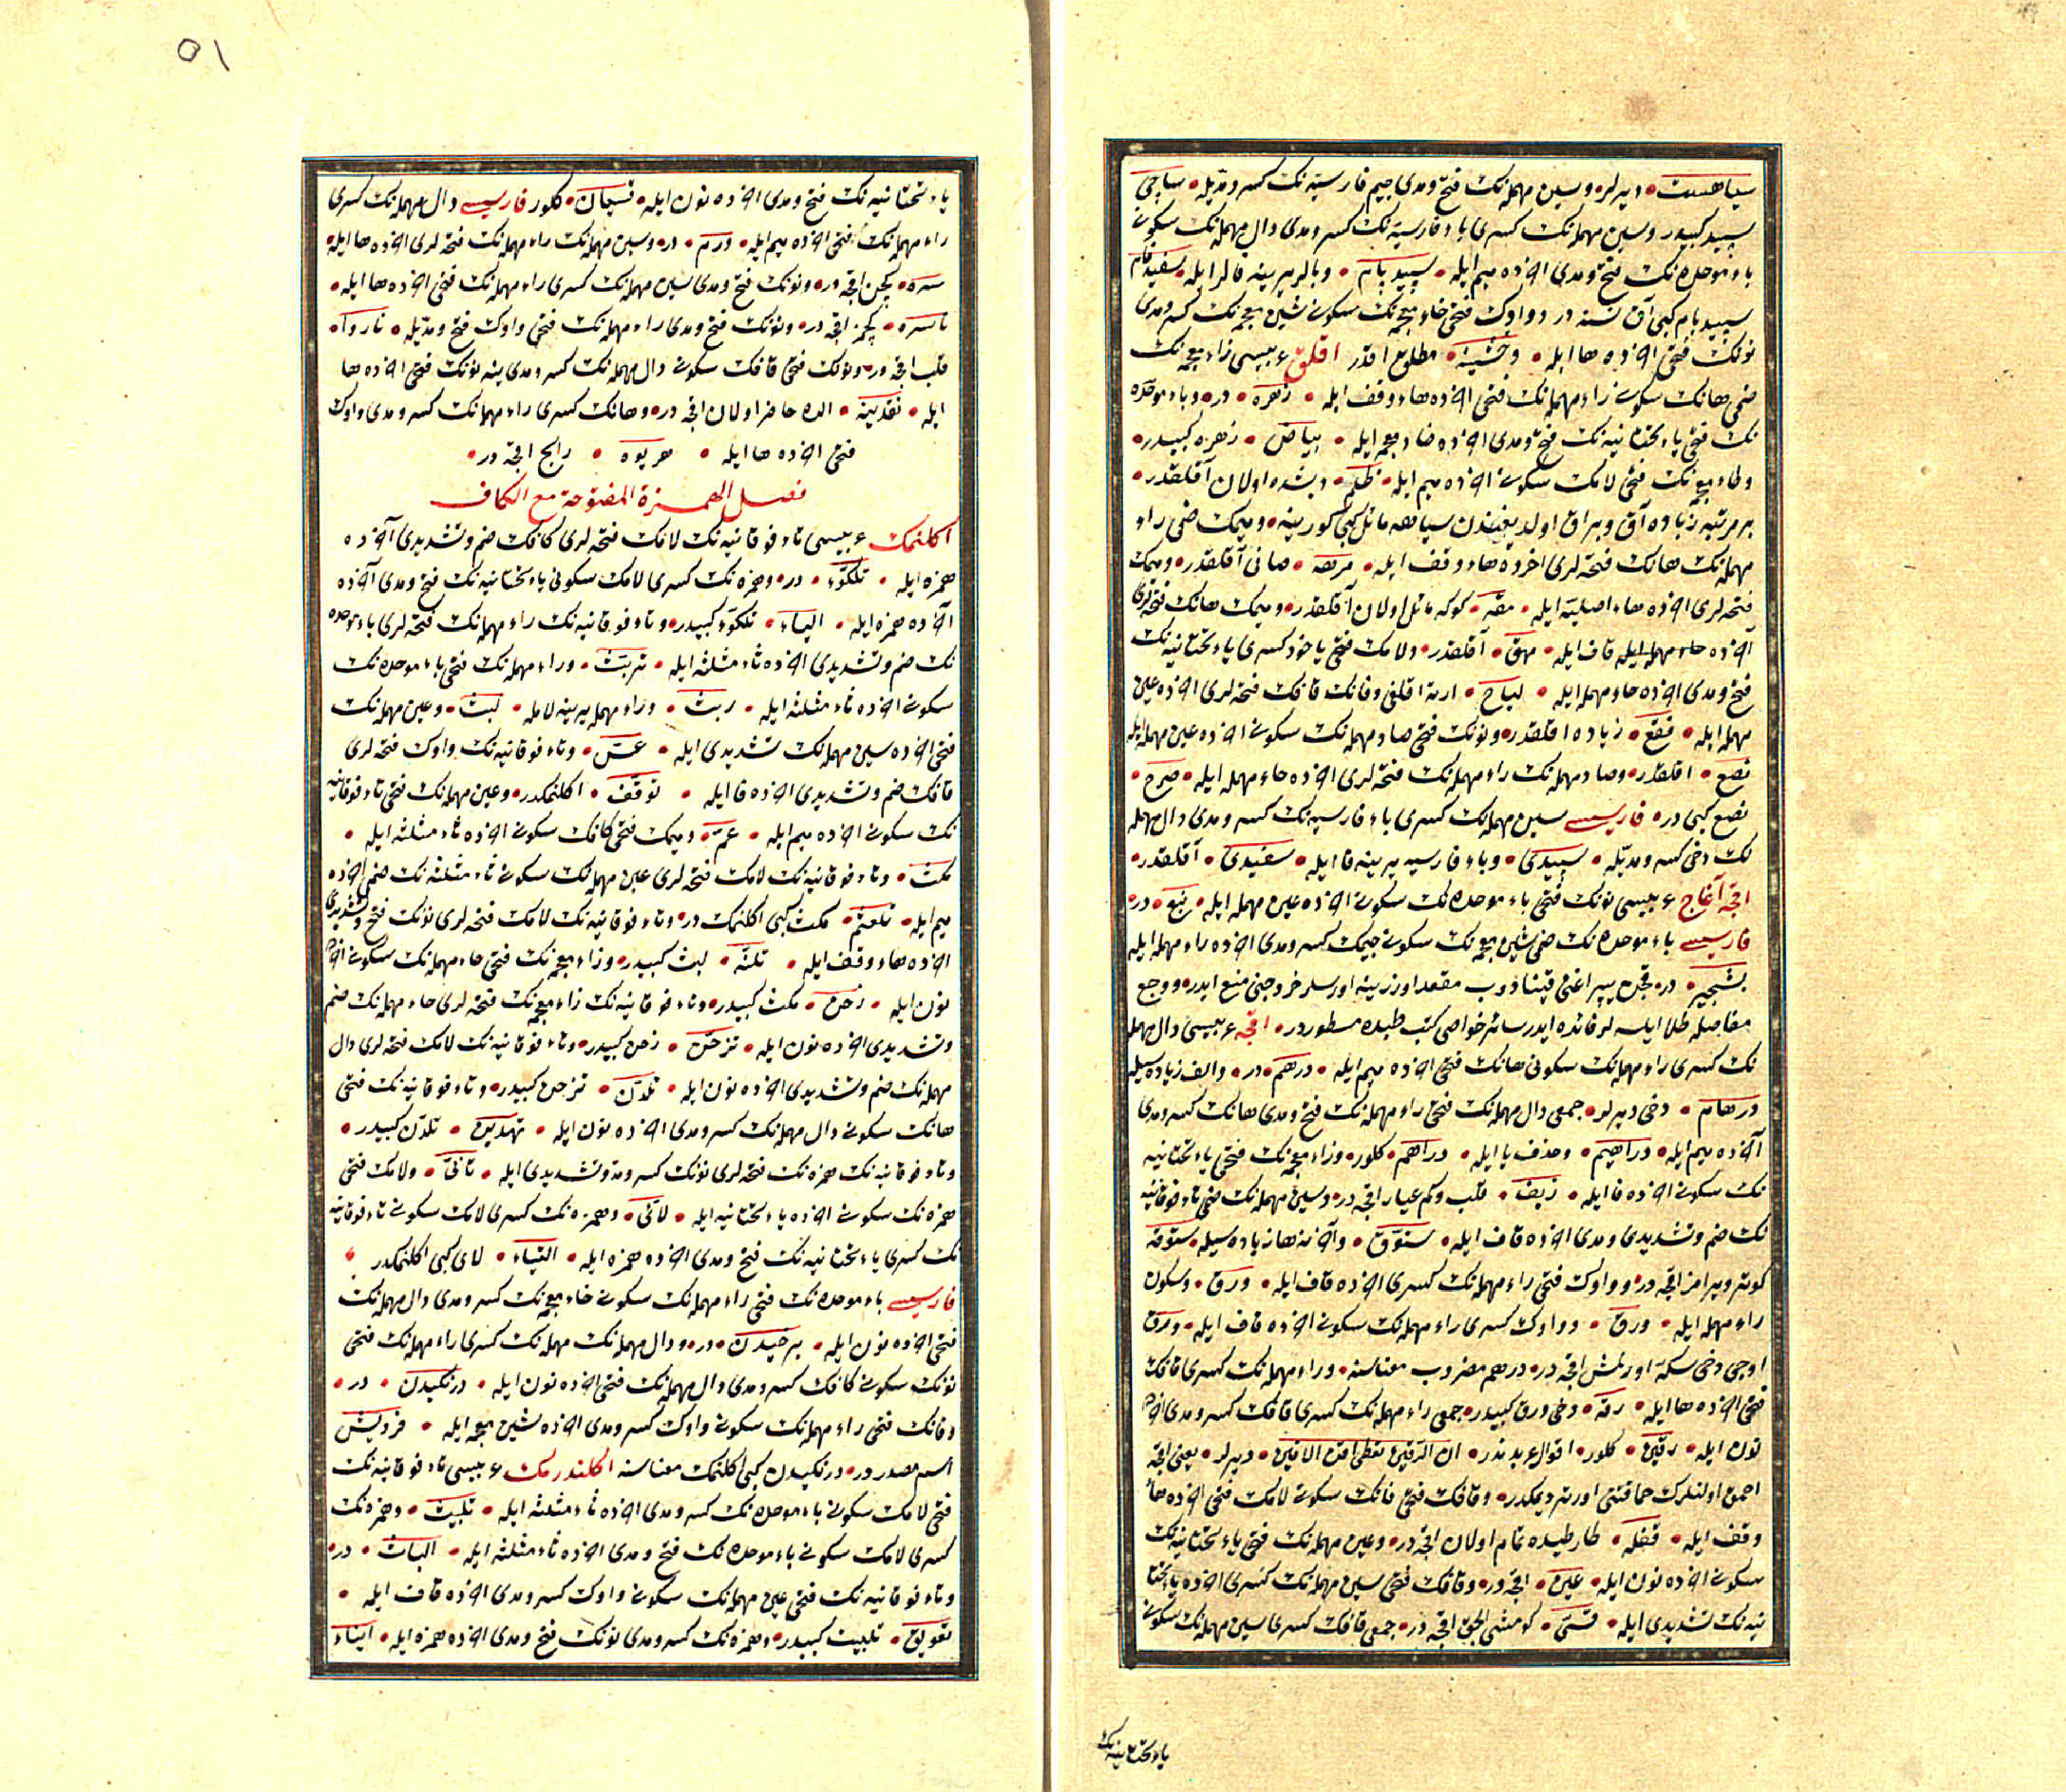 سیاهست • دیرلر • وسین مهمله‌نک فتح و مدی جیم فارسیه‌نک کسر و مدّیله • سیاجی
سپید کبیدر وسین مهمله‌نک کسری باء فارسیه‌نک کسر و مدی دال مهمله‌نک سکونی
باء موحده‌نک فتح و مدی آخرده میم ایله • سپیدبام • وبالر یرینه فالر ایله • سفیدفام
سپیدبام کبی آق نسنه در و واوک فتحی خاء معجمه‌نک سکونی شین معجمه‌نک کسر و مدی
نونک فتحی آخرده ها ایله • وخشینه • مطلوع اقدر اقلق عربیسی زاء معجمه‌نک
ضمی هانک سکونی راء مهمله‌نک فتحی آخرده هاء وقف ایله • زهره • در • وباء موحده
نک فتحی یاء تحتانیه‌نک فتح و مدی آخرده ضاد معجمه ایله • بیاض • زهره کبیدر •
وظاء معجمه‌نک فتحی لامک سکونی آخرده میم ایله • ظلم • دیشده اولان آقلقدر •
بر مرتبه زیاده آق وبراق اولدیغیندن سیاهه مائل کبی کورینه • ومیمک ضمی راء
مهمله‌نک هانک فتحه‌لری آخرده هاء وقف ایله • مرهه • صافی آقلقدر • ومیمک
فتحه‌لری آخرده هاء اصلیه ایله • مقه • کوکه مائل اولان آقلقدر • ومیمک هانک فتحه‌لری
آخرده قاف ایله • مهق • آقلقدر • ولامک فتحی یاخود کسری یاء تحتانیه‌نک
فتح و مدی آخرده حاء مهمله ایله • لیاح • ارته اقلغی وفانک قافک فتحه‌لری آخرده عین
مهمله ایله • فقع • زیاده اقلقدر • ونونک فتحی صاد مهمله‌نک سکونی آخرده عین مهمله ایله
نصع • اقلقدر • وصاد مهمله‌نک راء مهمله‌نک فتحه‌لری آخرده حاء مهمله ایله • صرح •
نصع کبی در • فارسیسی سین مهمله‌نک کسری باء فارسیه‌نک کسر و مدی دال مهمله
نک دخی کسر و مدّیله • سپیدی • وباء فارسیه یرینه فا ایله • سفیدی • آقلقدر •
اقجه آغاج عربیسی نونک فتحی باء موحده‌نک سکونی آخرده عین مهمله ایله • نبع • در •
فارسیسی باء موحده‌نک ضمی شین معجمه‌نک سکونی جیمک کسر و مدی آخرده راء مهمله ایله
بشجیر • در • مقعد اوزرینه اورسلر خروجنی منع ایدر • ووجع
مفاصله طلا ایلسه‌لر فائده ایدر سائر خواصی کتب طبده مسطوردر • اقچه عربیسی دال مهمله
نک کسری راء مهمله‌نک سکونی هانک فتحی آخرده میم ایله • درهم • در • والف زیاده‌سیله
درهام • دخی دیرلر • جمعی دال مهمله‌نک فتحی راء مهمله‌نک فتح و مدی هانک کسر و مدی
آخرده میم ایله • دراهیم • وحذف یا ایله • دراهم • کلور • وزاء معجمه‌نک فتحی یاء تحتانیه
نک سکونی آخرده فا ایله • زیف • قلب وکم عیار اقچه در • وسین مهمله‌نک ضمی تاء فوقانیه
نک ضم و تشدیدی و مدی آخرده قاف ایله • ستوق • وآخرنه ها زیاده‌سیله • ستوقه
کوتر ویرامز اقچه در • وواوک فتحی راء مهمله‌نک کسری آخرده قاف ایله • ورق • وسکون
راء مهمله ایله • ورق • وواوک کسری راء مهمله‌نک سکونی آخرده قاف ایله • ورق
اوچی دخی سکه اورلمش اقچه در • درهم مضروب معناسنه • وراء مهمله‌نک کسری قافک
فتحی آخرده ها ایله • رقه • دخی ورق کبیدر • جمعی راء مهمله‌نک کسری قافک کسر و مدی آخرده
نون ایله • رقین • کلور • اقوال عربدندر • ان الرقین تغطی افن الافین • دیرلر • یعنی اقچه
احمق اولنلرک حماقتنی اورتر دیمکدر • وقافک فتحی فانک سکونی لامک فتحی آخرده هاء
وقف ایله • قفله • طارطیده تمام اولان اقچه در • وعین مهمله‌نک فتحی یاء تحتانیه‌نک
سکونی آخرده نون ایله • عین • اقچه در • وقافک فتحی سین مهمله‌نک کسری آخرده یاء تحتا
نیه‌نک تشدیدی ایله • قسیّ • کومشی الچق اقچه در • جمعی قافک کسری سین مهمله‌نک سکونی
یاء تحتانیه‌نک
٥١
یاء تحتانیه‌نک فتح و مدی آخرده نون ایله • قسیان • کلور فارسیسی دال مهمله‌نک کسری
راء مهمله‌نک فتحی آخرده میم ایله • درم • در • وسین مهمله‌نک راء مهمله‌نک فتحه‌لری آخرده ها ایله •
سره • کچن اقچه در • ونونک فتح و مدی سین مهمله‌نک کسری راء مهمله‌نک فتحی آخرده ها ایله •
ناسره • کچمز اقچه در • ونونک فتح و مدی راء مهمله‌نک فتحی واوک فتح و مدّیله • ناروا •
قلب اقچه در • ونونک فتحی قافک سکونی دال مهمله‌نک کسر و مدی ینه نونک فتحی آخرده ها
ایله • نقدینه • الده حاضر اولان اقچه در • وهانک کسری راء مهمله‌نک کسر و مدی واوک
فتحی آخرده ها ایله • هریوه • رایج اقچه در •
فصل الهمزة المفتوحة مع الکاف
اکلنمک عربیسی تاء فوقانیه‌نک لامک فتحه‌لری کافک ضم و تشدیدی آخرده
همزه ایله • تلکّؤ • در • وهمزه‌نک کسری لامک سکونی یاء تحتانیه‌نک فتح و مدی آخرده
آخرده همزه ایله • الیاء • تلکّؤ کبیدر • وتاء فوقانیه‌نک راء مهمله‌نک فتحه‌لری باء موحده
نک ضم و تشدیدی آخرده ثاء مثلثه ایله • تربّث • وراء مهمله‌نک فتحی باء موحده‌نک
سکونی آخرده ثاء مثلثه ایله • ربث • وراء مهمله یرینه لام ایله • لبث • وعین مهمله‌نک
فتحی آخرده سین مهمله‌نک تشدیدی ایله • عسّ • وتاء فوقانیه‌نک واوک فتحه‌لری
قافک ضم و تشدیدی آخرده فا ایله • توقّف • اکلنمکدر • وعین مهمله‌نک فتحی تاء فوقانیه
نک سکونی آخرده میم ایله • عتم • ومیمک فتحی کافک سکونی آخرده ثاء مثلثه ایله •
مکث • وتاء فوقانیه‌نک لامک فتحه‌لری عین مهمله‌نک سکونی ثاء مثلثه‌نک ضمی آخرده
میم ایله • تلعثم • مکث کبی اکلنمک در • وتاء فوقانیه‌نک لامک فتحه‌لری نونک فتح و تشدیدی
آخرده هاء وقف ایله • تلنّه • لبث کبیدر • وزاء معجمه‌نک فتحی حاء مهمله‌نک سکونی آخرده
نون ایله • زحن • مکث کبیدر • وتاء فوقانیه‌نک زاء معجمه‌نک فتحه‌لری حاء مهمله‌نک ضم
و تشدیدی آخرده نون ایله • تزحّن • زحن کبیدر • وتاء فوقانیه‌نک لامک فتحه‌لری دال
مهمله‌نک ضم و تشدیدی آخرده نون ایله • تلدّن • تزحن کبیدر • وتاء فوقانیه‌نک فتحی
هانک سکونی دال مهمله‌نک کسر و مدی آخرده نون ایله • تهدین • تلدّن کبیدر •
وتاء فوقانیه‌نک همزه‌نک فتحه‌لری نونک کسر و مد و تشدیدی ایله • تأنّی • ولامک فتحی
همزه‌نک سکونی آخرده یاء تحتانیه ایله • لأی • وهمزه‌نک کسری لامک سکونی تاء فوقانیه
نک کسری یاء تحتانیه‌نک فتح و مدی آخرده همزه ایله • التیاء • لای کبی اکلنمکدر •
فارسیسی باء موحده‌نک فتحی راء مهمله‌نک سکونی خاء معجمه‌نک کسر و مدی دال مهمله‌نک
فتحی آخرده نون ایله • برخیدن • در • ودال مهمله‌نک مهمله‌نک کسری راء مهمله‌نک فتحی
نونک سکونی کافک کسر و مدی دال مهمله‌نک فتحی آخرده نون ایله • درنکیدن • در •
وفانک فتحی راء مهمله‌نک سکونی واوک کسر و مدی آخرده شین معجمه ایله • فرویش
اسم مصدر در • درنکیدن کبی اکلنمک معناسنه اکلندرمک عربیسی تاء فوقانیه‌نک
فتحی لامک سکونی باء موحده‌نک کسر و مدی آخرده ثاء مثلثه ایله • تلبیث • وهمزه‌نک
کسری لامک سکونی باء موحده‌نک فتح و مدی آخرده ثاء مثلثه ایله • الباث • در •
وتاء فوقانیه‌نک فتحی عین مهمله‌نک سکونی واوک کسر و مدی آخرده قاف ایله •
تعویق • تلبیث کبیدر • وهمزه‌نک کسر و مدی نونک فتح و مدی آخرده همزه ایله • ایناء